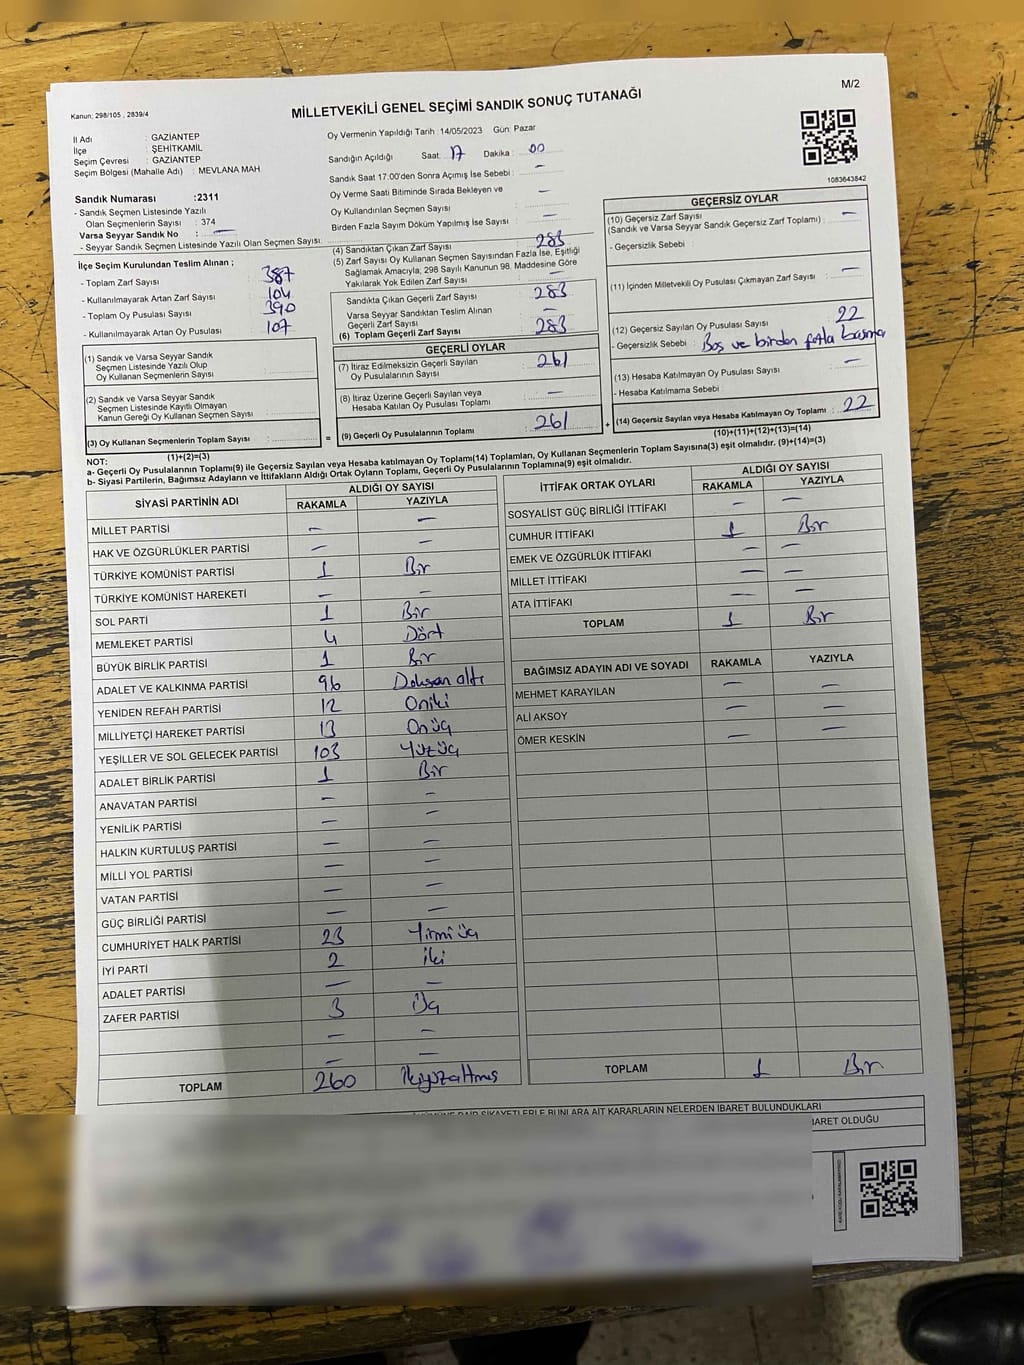 M/2
Kanun: 298/105 , 2839/4
MİLLETVEKİLİ GENEL SEÇİMİ SANDIK SONUÇ TUTANAĞI
İl Adı : GAZİANTEP
İlçe : ŞEHİTKAMİL
Seçim Çevresi : GAZİANTEP
Seçim Bölgesi (Mahalle Adı) : MEVLANA MAH
Oy Vermenin Yapıldığı Tarih : 14/05/2023 Gün: Pazar
Sandığın Açıldığı Saat: 17 Dakika : 00
Sandık Saat 17:00'den Sonra Açımış İse Sebebi : —
Oy Verme Saati Bitiminde Sırada Bekleyen ve
Oy Kullandırılan Seçmen Sayısı —
Birden Fazla Sayım Döküm Yapılmış İse Sayısı : —
1083643842
Sandık Numarası :2311
- Sandık Seçmen Listesinde Yazılı
Olan Seçmenlerin Sayısı : 374
Varsa Seyyar Sandık No : —
- Seyyar Sandık Seçmen Listesinde Yazılı Olan Seçmen Sayısı:
İlçe Seçim Kurulundan Teslim Alınan ;
- Toplam Zarf Sayısı : 387
- Kullanılmayarak Artan Zarf Sayısı : 104
- Toplam Oy Pusulası Sayısı : 390
- Kullanılmayarak Artan Oy Pusulası : 107
(1) Sandık ve Varsa Seyyar Sandık
Seçmen Listesinde Yazılı Olup
Oy Kullanan Seçmenlerin Sayısı :
(2) Sandık ve Varsa Seyyar Sandık
Seçmen Listesinde Kayıtlı Olmayan
Kanun Gereği Oy Kullanan Seçmen Sayısı :
(3) Oy Kullanan Seçmenlerin Toplam Sayısı :
(1)+(2)=(3)
(4) Sandıktan Çıkan Zarf Sayısı : 283
(5) Zarf Sayısı Oy Kullanan Seçmen Sayısından Fazla İse, Eşitliği
Sağlamak Amacıyla; 298 Sayılı Kanunun 98. Maddesine Göre
Yakılarak Yok Edilen Zarf Sayısı : —
Sandıkta Çıkan Geçerli Zarf Sayısı : 283
Varsa Seyyar Sandıktan Teslim Alınan
Geçerli Zarf Sayısı : —
(6) Toplam Geçerli Zarf Sayısı : 283
GEÇERLİ OYLAR
(7) İtiraz Edilmeksizin Geçerli Sayılan
Oy Pusulalarının Sayısı : 261
(8) İtiraz Üzerine Geçerli Sayılan veya
Hesaba Katılan Oy Pusulası Toplamı : —
= (9) Geçerli Oy Pusulalarının Toplamı : 261
GEÇERSİZ OYLAR
(10) Geçersiz Zarf Sayısı
(Sandık ve Varsa Seyyar Sandık Geçersiz Zarf Toplamı) : —
- Geçersizlik Sebebi :
(11) İçinden Milletvekili Oy Pusulası Çıkmayan Zarf Sayısı : —
(12) Geçersiz Sayılan Oy Pusulası Sayısı : 22
- Geçersizlik Sebebi : Boş ve birden fazla basma
(13) Hesaba Katılmayan Oy Pusulası Sayısı : —
- Hesaba Katılmama Sebebi :
+ (14) Geçersiz Sayılan veya Hesaba Katılmayan Oy Toplamı : 22
(10)+(11)+(12)+(13)=(14)
NOT:
a- Geçerli Oy Pusulalarının Toplamı(9) ile Geçersiz Sayılan veya Hesaba katılmayan Oy Toplamı(14) Toplamları, Oy Kullanan Seçmenlerin Toplam Sayısına(3) eşit olmalıdır. (9)+(14)=(3)
b- Siyasi Partilerin, Bağımsız Adayların ve İttifakların Aldığı Ortak Oyların Toplamı, Geçerli Oy Pusulalarının Toplamına(9) eşit olmalıdır.
SİYASİ PARTİNİN ADI ALDIĞI OY SAYISI
RAKAMLA YAZIYLA
MİLLET PARTİSİ — —
HAK VE ÖZGÜRLÜKLER PARTİSİ — —
TÜRKİYE KOMÜNİST PARTİSİ 1 Bir
TÜRKİYE KOMÜNİST HAREKETİ — —
SOL PARTİ 1 Bir
MEMLEKET PARTİSİ 4 Dört
BÜYÜK BİRLİK PARTİSİ 1 Bir
ADALET VE KALKINMA PARTİSİ 96 Doksan altı
YENİDEN REFAH PARTİSİ 12 Oniki
MİLLİYETÇİ HAREKET PARTİSİ 13 Onüç
YEŞİLLER VE SOL GELECEK PARTİSİ 103 Yüzüç
ADALET BİRLİK PARTİSİ 1 Bir
ANAVATAN PARTİSİ — —
YENİLİK PARTİSİ — —
HALKIN KURTULUŞ PARTİSİ — —
MİLLİ YOL PARTİSİ — —
VATAN PARTİSİ — —
GÜÇ BİRLİĞİ PARTİSİ — —
CUMHURİYET HALK PARTİSİ 23 Yirmiüç
İYİ PARTİ 2 İki
ADALET PARTİSİ — —
ZAFER PARTİSİ 3 Üç
— —
— —
TOPLAM 260 İkiyüzaltmış
İTTİFAK ORTAK OYLARI ALDIĞI OY SAYISI
RAKAMLA YAZIYLA
SOSYALİST GÜÇ BİRLİĞİ İTTİFAKI — —
CUMHUR İTTİFAKI 1 Bir
EMEK VE ÖZGÜRLÜK İTTİFAKI — —
MİLLET İTTİFAKI — —
ATA İTTİFAKI — —
TOPLAM 1 Bir
BAĞIMSIZ ADAYIN ADI VE SOYADI RAKAMLA YAZIYLA
MEHMET KARAYILAN — —
ALİ AKSOY — —
ÖMER KESKİN — —
TOPLAM 1 Bir
ŞİKAYETLERLE BUNLARA AİT KARARLARIN NELERDEN İBARET BULUNDUKLARI
BARET OLDUĞU